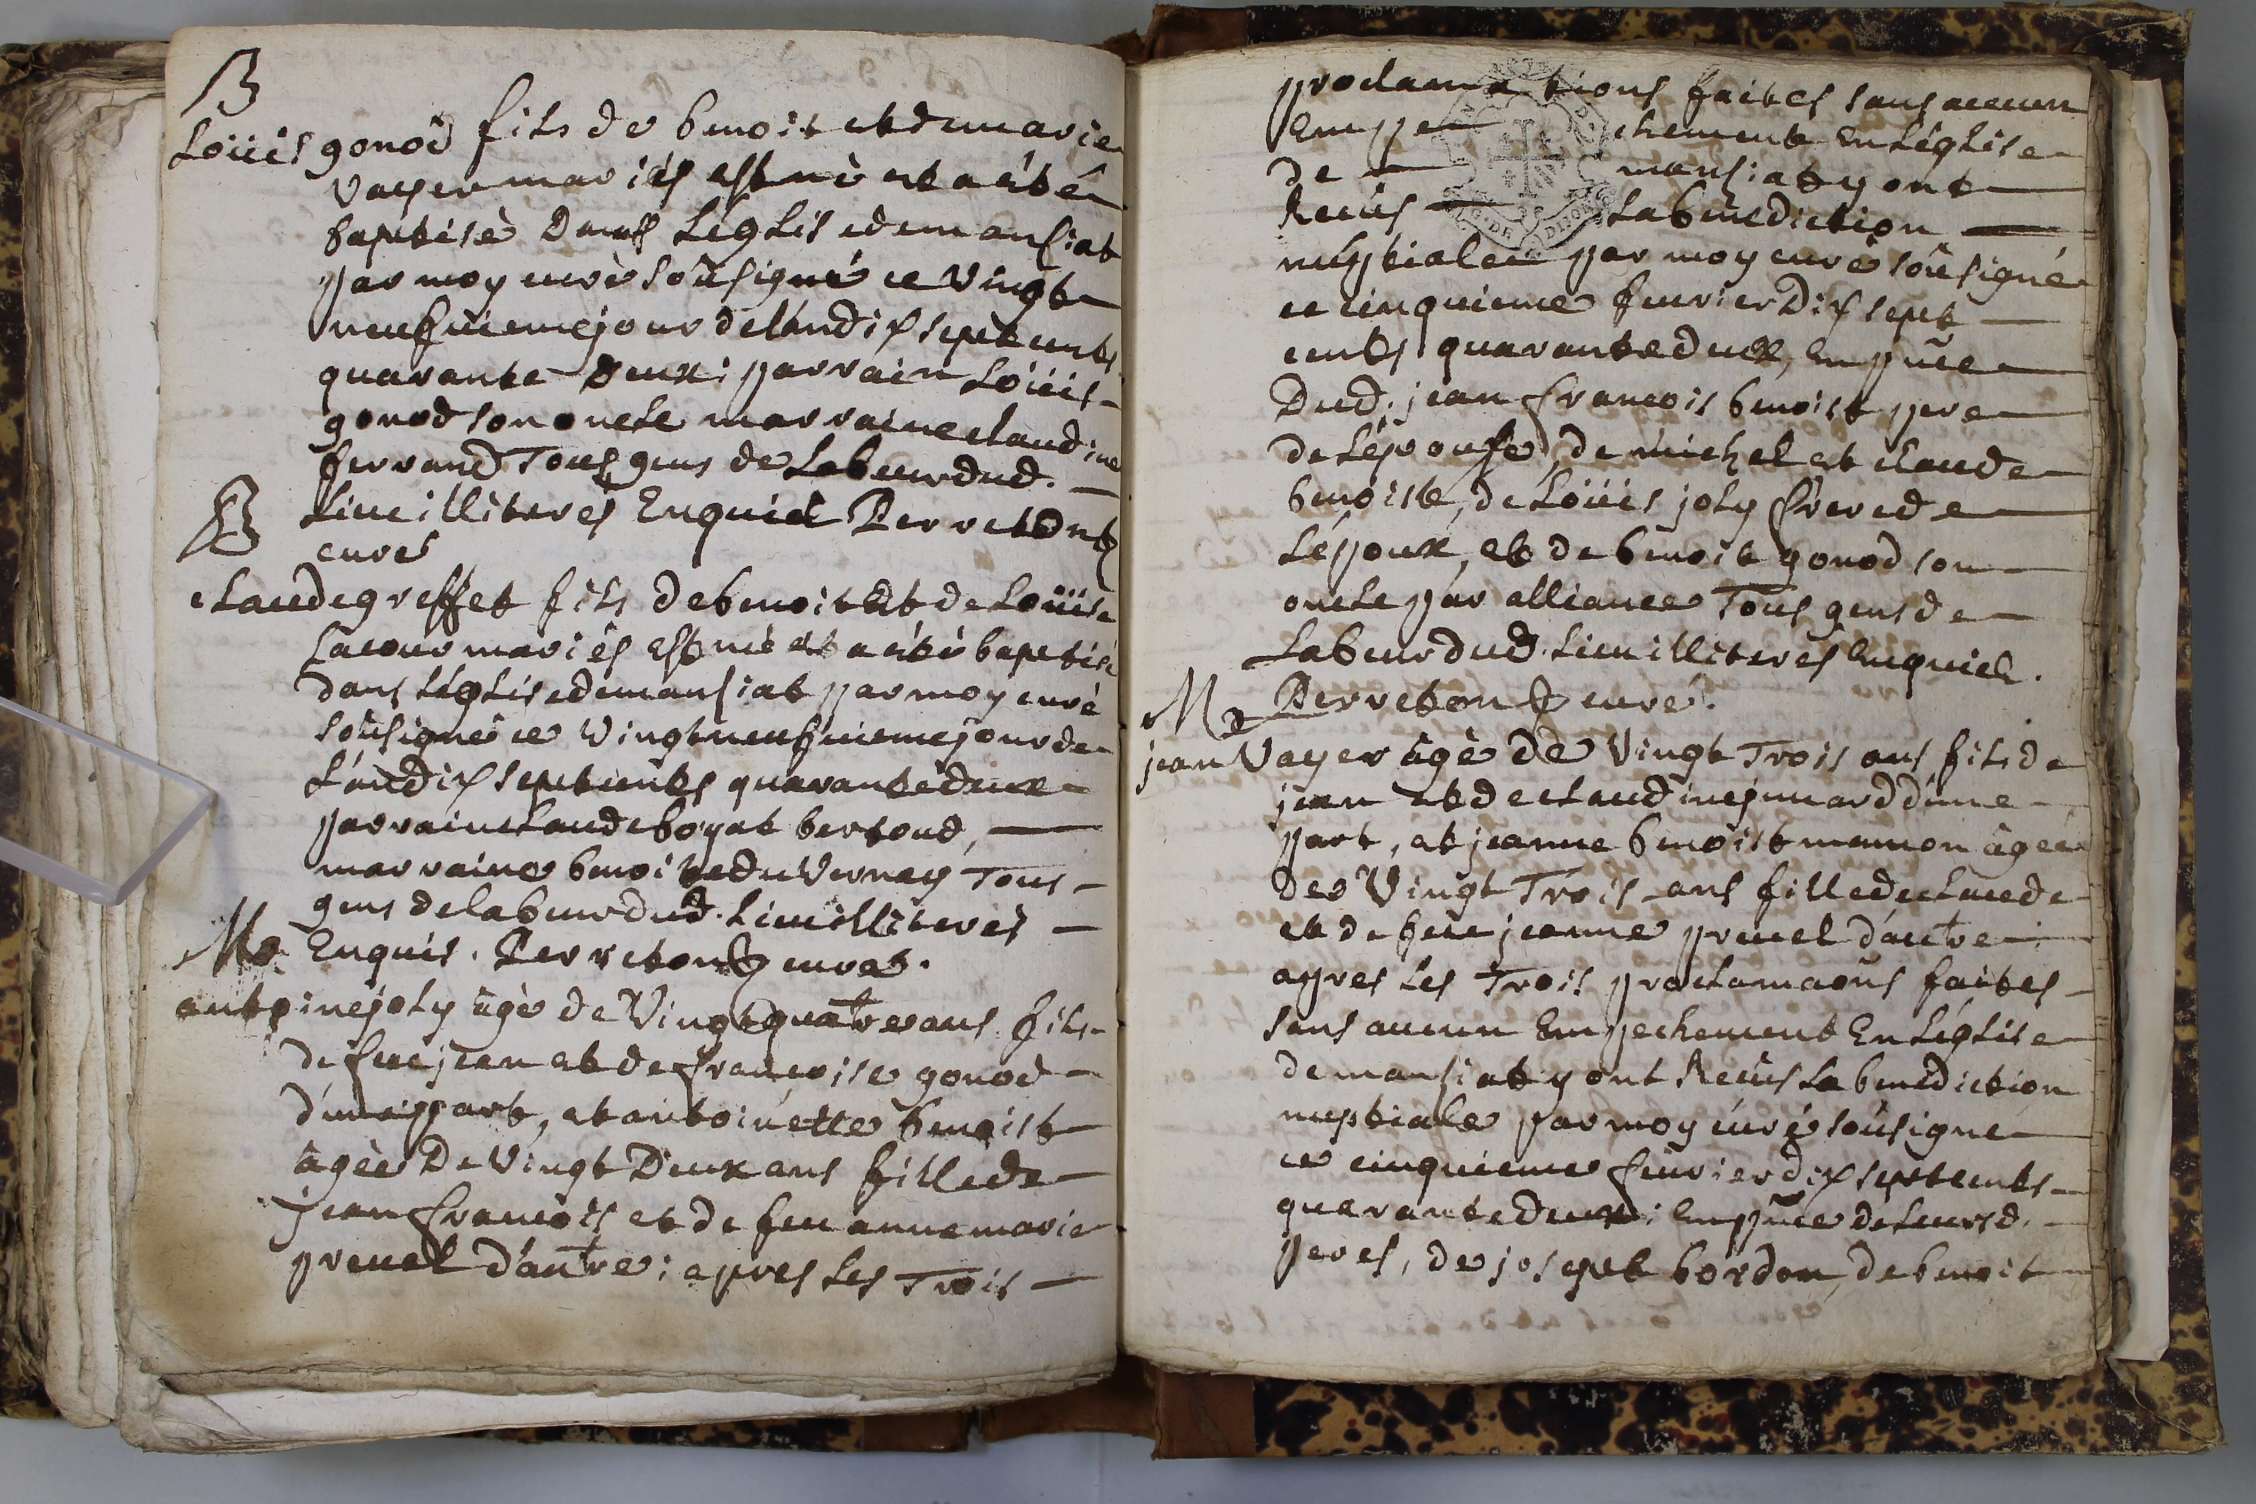 B
Loüis gonod fils de benoit et de marie
vayer mariés est né et a été
baptisé Dans L'église de mansiat
par moy curé soûsigné ce vingt
neufviemejour de l'an dix sept cents
quarante Deux: parrain Loüis
gonod son oncle marraine claudine
ferrand Tous gens de Labeur dud.
B
Lieu illiterés Enquis Perreton
curé
claude greffet fils de benoit Et de Loüise
Lacour mariés Est né et a été baptisé
dans L'église de mansiat par moy curé
soûsigné ce vingt neufviemejour de
L'an dix sept cents quarante deux
parrain claude boyat bertoud,
marraine benoite du verney Tous
gens de labeur dud. Lieu illiterés
Me
Enquis. Perreton curé.
antoine joly âgé de vingt quatre ans fils
de feu jean et de francoise gonod
d'une part, et antoinette benoist
âgée De vingt Deux ans fille de
jean francois et de feu anne marie
preuel d'autre; apres Les Trois
proclama tions faites sans aucun
Empe chement En L'église
de mansiat y ont
Recûs La benediction
nuptiale par moy curé soûsigné
ce cinquieme fevrier Dix sept
cents quarante deux, En pñce
Dud. jean francois benoist pere
de L'épouse, de michel et claude
benoist, de Loüis joly frere de
L'époux, et de benoit gonod son
oncle par alliance Tous gens de
Labeur dud. Lieu illiterés Enquis.
Me
Perreton curé.
jean vayer âgé de vingt Trois ans fils de
jean et de claudine d'une
part, et jeanne benoist manon âgée
De vingt Trois ans fille de claude
et de feue jeanne preuel d'autre
apres Les Trois proclamaõns faites
sans aucun Empechement En L'église
de mansiat y ont Recûs La benediction
nuptiale par moy curé soûsigné
ce cinquieme fevrier dix sept cents
quarante deux; En pñce de Leursd.
peres, de josept bordon, de benoit